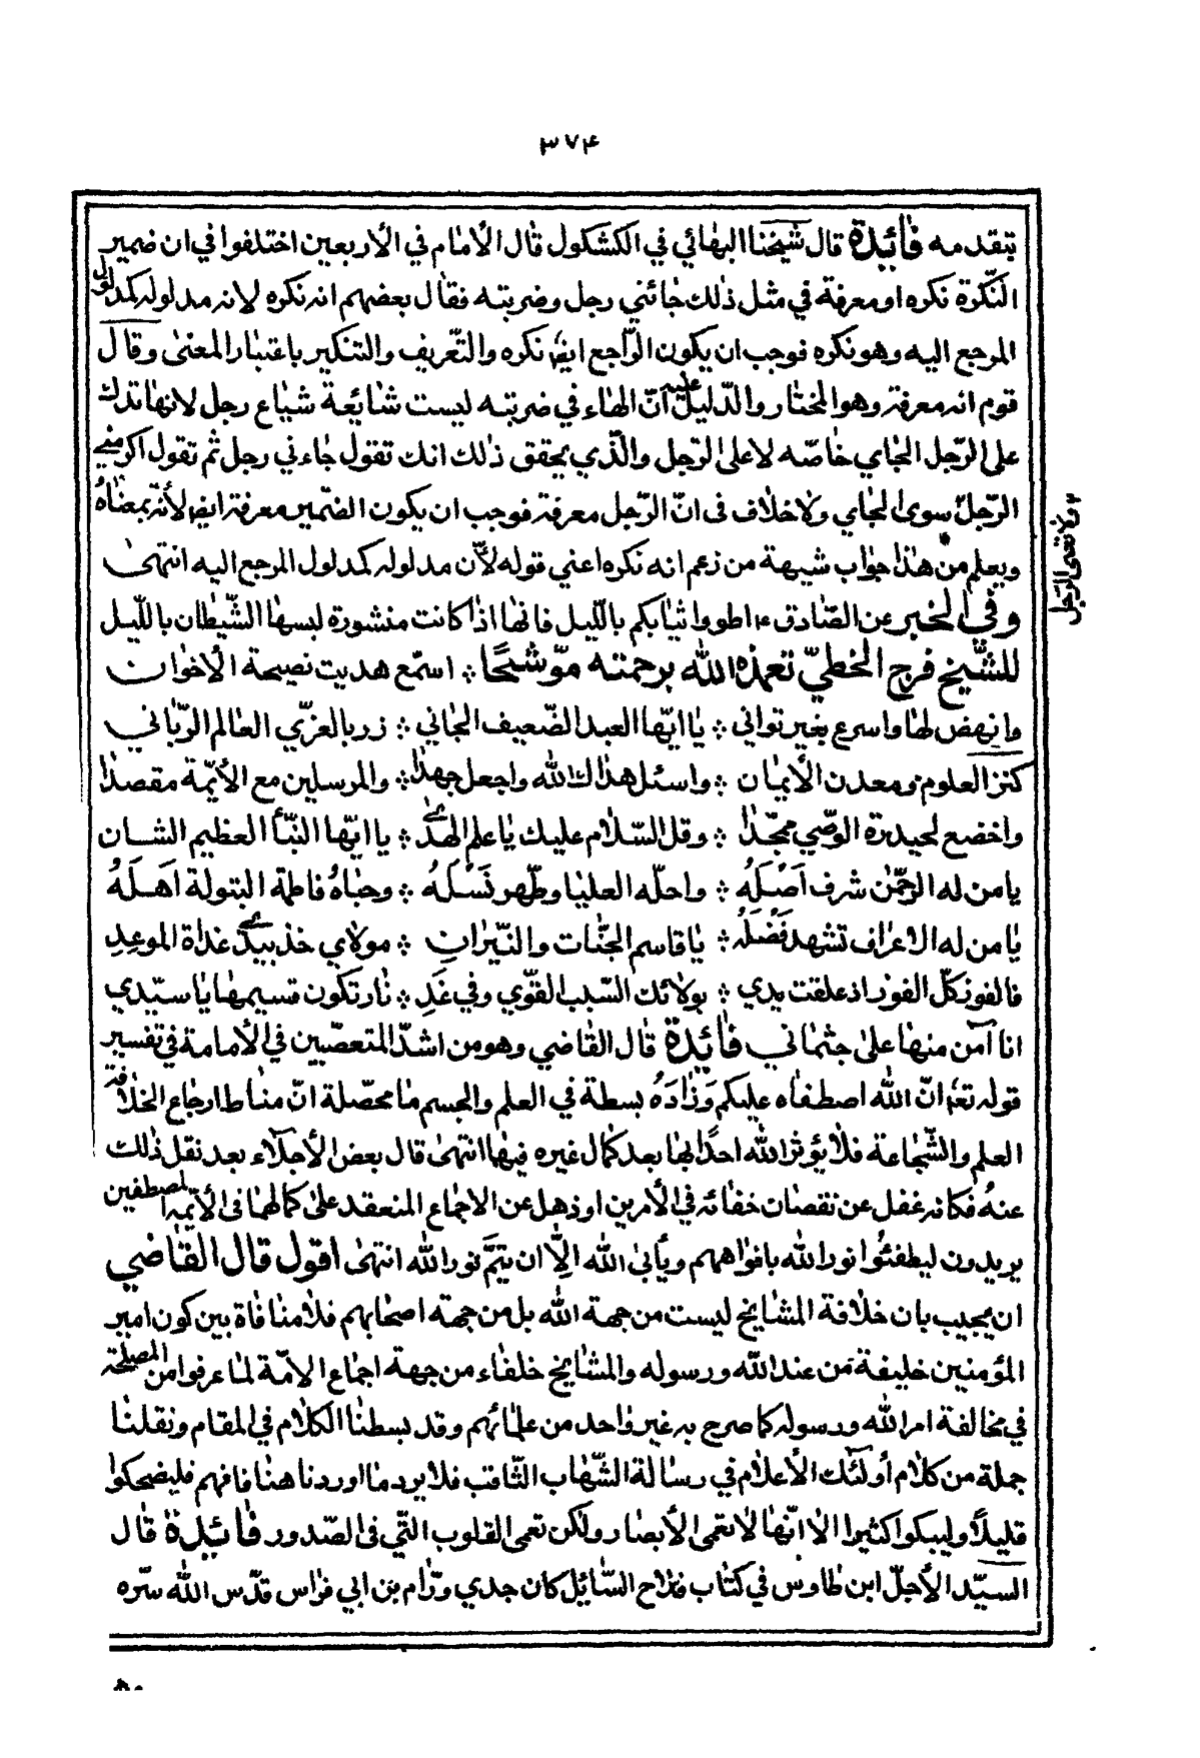 ٣٧۴
بتقدمه فائدة قال شيخنا البهائي في الكشكول قال الأمام في الأربعين اختلفوا في ان ضمير
النّكرة نكره او معرفة في مثل ذلك جائني رجل وضربته فقال بعضهم انه نكره لانه مدلوله كمدلول
المرجع اليه وهو نكره فوجب ان يكون الرّاجع ايضا نكره والتّعريف والتنكير باعتبار المعنى وقال
قوم انه معرفة وهو المختار والدّليل عليه أنّ الهاء في ضربته ليست شائعة شياع رجل لانها تدل
على الرّجل الجاي خاصّه لا على الرّجل والّذي يحقق ذلك انك تقول جاءني رجل ثم تقول اكرمني
الرّجل سوى الجاي ولا خلاف فى انّ الرّجل معرفة فوجب ان يكون الضّمير معرفة ايضا لأنّه بمعناه
ويعلم من هذا جواب شبهة من زعم انه نكره اعني قوله لأنّ مدلوله كمدلول المرجع اليه انتهى
وفي الخبر عن الصّادق ع اطووا ثيابكم باللّيل فانها اذا كانت منشورة لبسها الشّيطان باللّيل
للشّيخ فرج الخطيّ تغمذه الله برحمته موّشيحًا ؞ استمع هديت نصيحة الأخوان
وانهض لها واسرع بغير تواني ؞ يا ايّها العبد الضّعيف الجاني ؞ زر بالغريّ العالم الرّباني
كنز العلوم ومعدن الأيمان ؞ واسئل هداك الله واجعل جهذا ؞ والمرسلين مع الأئمّة مقصذا
واخضع لحيدرة الوصّي ممجّدا ؞ وقل السّلام عليك يا علم الهدى ؞ يا ايّها النّبأ العظيم الشان
يا من له الرّحمن شرف اَصْلَهُ ؞ واحلّه العليا وطّهر نَسْلَهُ ؞ وحباهُ فاطمة البتولة اَهْلَهُ
يا من له الاعراف تشهد فَضْلَهُ ؞ يا قاسم الجنّات والنّيران ؞ مولاي خذ بيدي غداة الموعِدِ
فالفوز كلّ الفوز اذ علقت يدي ؞ بولائك السّبب القوّي وفي غَدِ ؞ نار تكون قسيمها يا سيّدي
انا آمن منها على جثماني فائدة قال القاضي وهو من اشدّ المتعصّبين في الأمامة في تفسير
قوله تعا انّ الله اصطفاه عليكم وَزَادَهُ بسطة في العلم والجسم ما محصّلة انّ مناط ارجاع الخلافة
العلم والشّجاعة فلا يؤثر الله احدًا بها بعد كمال غيره فيها انتهى قال بعض الأجلاّء بعد نقل ذلك
عنهُ فكانه غفل عن نقصان خفائه في الأمرين او ذهل عن الاجماع المنعقد على كمالهما فى الأئمة المصطفين
يريدون ليطفئُوا نور الله بافواههم ويأبى الله اِلّا ان يتمَّ نور الله انتهى اقول قال القاضي
ان يجيب بان خلافة المشايخ ليست من جهة الله بل من جهة اصحابهم فلا منافاة بين كون امير
المؤمنين خليفة من عند الله ورسوله والمشايخ خلفاء من جهة اجماع الامّة لما عرفوا من المصلحة
في مخالفة امر الله ورسوله كما صرح به غير واحد من علمائهم وقد بسطنا الكلام في المقام ونقلنا
جملة من كلام أولئك الأعلام في رسالة الشّهاب الثّاقب فلا يرد ما اوردنا هنا فافهم فليضحكوا
قليلًا وليبكوا كثيرا الا انّها لا تعمى الأبصار ولكن تعمى القلوب التّي فى الصّدور فائدة قال
السيّد الأجلّ ابن طاوس في كتاب فلاح السّائل كان جدي ورّام بن ابي فراس قدّس الله سّره